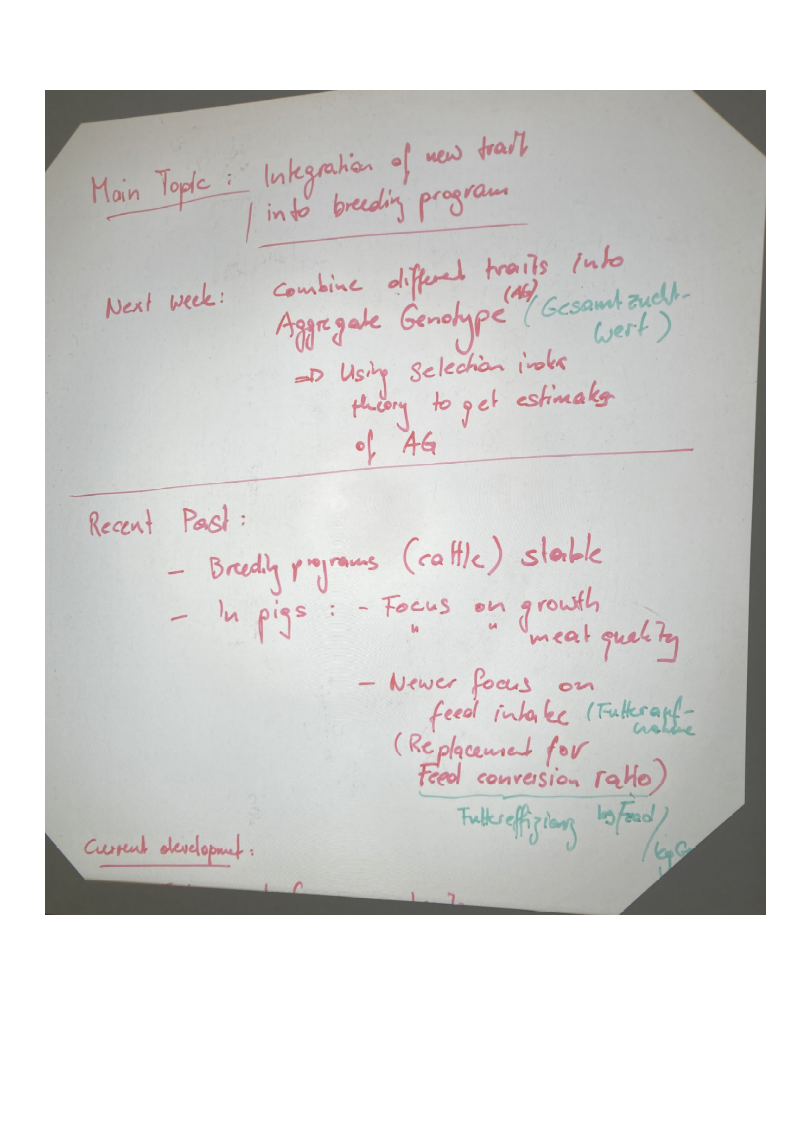 Main Topic: Integration of new trait
into breeding program
Next week: Combine different traits into
Aggregate Genotype (AG) (Gesamtzucht-
wert)
=> Using Selection index
theory to get estimates
of AG
Recent Past:
- Breeding programs (cattle) stable
- In pigs: - Focus on growth
" " meat quality
- Newer focus on
feed intake (Futterauf-
nahme
(Replacement for
Feed conversion ratio)
Futtereffizienz kg Feed/
kg
Current development: